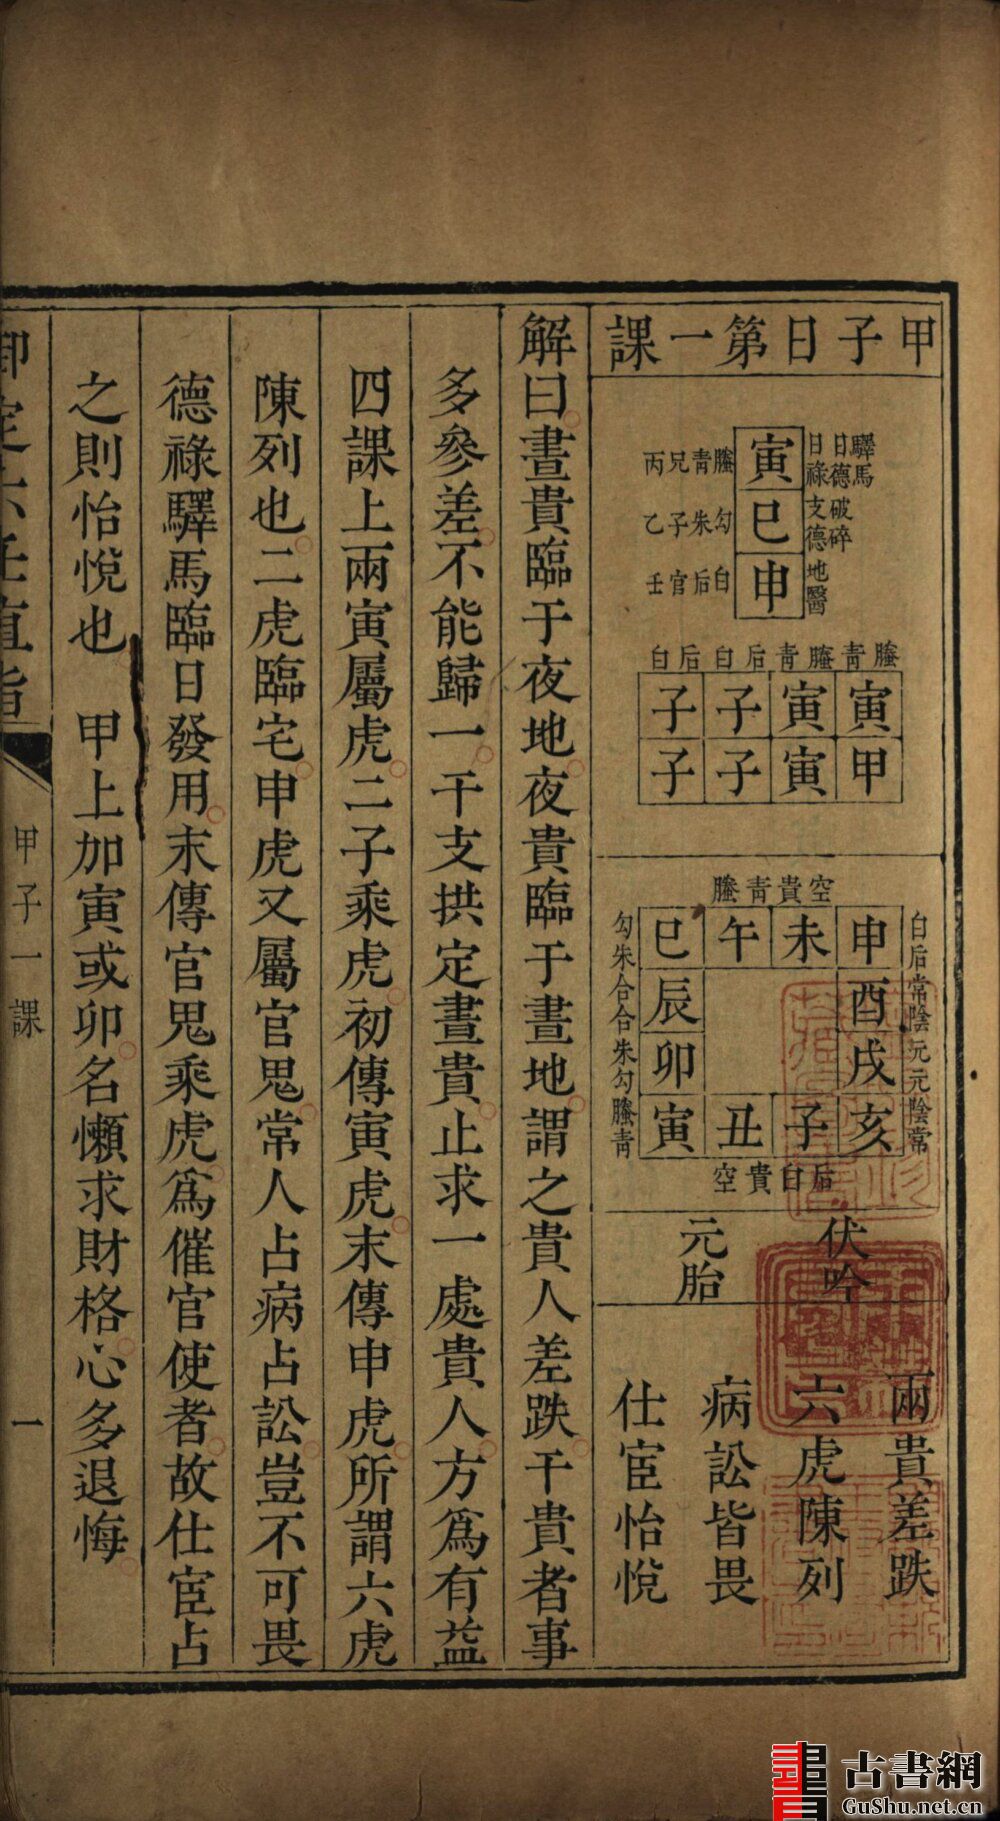 甲子日第一課
寅
巳
申
驛馬
日德
日祿
破碎
支德
地醫
螣青兄丙
勾朱子乙
白后官壬
螣青螣青后白后白
寅寅子子
甲寅子子
空貴青螣
申未午巳
酉辰
戌卯
亥子丑寅
白后常陰元元陰常
勾朱合合朱勾螣青
后白貴空
伏吟
元胎
兩貴差跌
六虎陳列
病訟皆畏
仕宦怡悅
解曰晝貴臨于夜地夜貴臨于晝地謂之貴人差跌干貴者事
多參差不能歸一干支拱定晝貴止求一處貴人方爲有益
四課上兩寅屬虎二子乘虎初傳寅虎末傳申虎所謂六虎
陳列也二虎臨宅申虎又屬官鬼常人占病占訟豈不可畏
德祿驛馬臨日發用末傳官鬼乘虎爲催官使者故仕宦占
之則怡悅也 甲上加寅或卯名懶求財格心多退悔
甲子一課
一
古書網
GuShu.net.cn